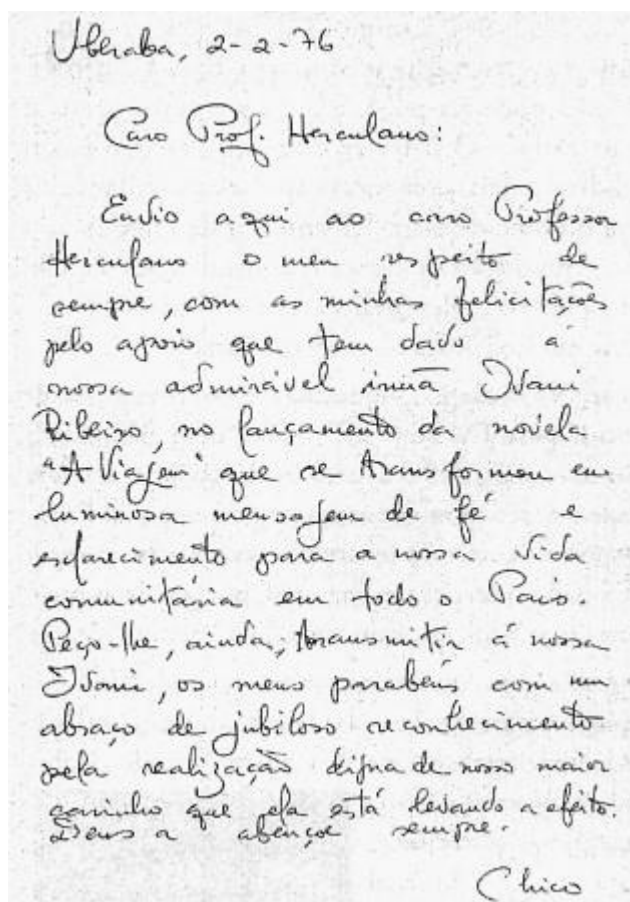 Uberaba, 2-2-76
Caro Prof. Herculano:
Envio aqui ao caro Professor
Herculano o meu respeito de
sempre, com as minhas felicitações
pelo apoio que tem dado á
nossa admirável irmã Ivani
Ribeiro, no lançamento da novela
"A Viagem" que se transformou em
luminosa mensagem de fé e
esclarecimento para a nossa vida
comunitária em todo o País.
Peço-lhe, ainda, transmitir á nossa
Ivani, os meus parabéns com um
abraço de jubiloso reconhecimento
pela realização digna de nosso maior
carinho que ela está levando a efeito.
Deus a abençoe sempre.
Chico